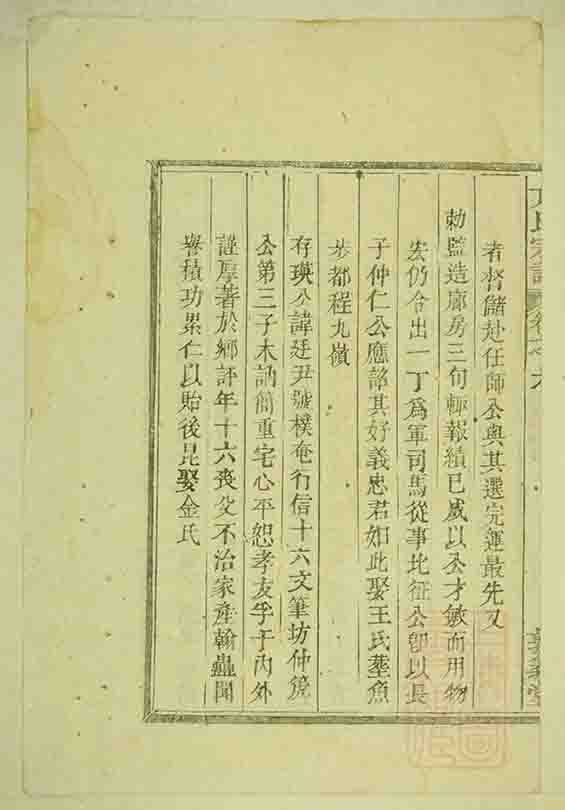 者督儲赴任師公與其選完運最先又
勅監造廊房三旬輒報績已咸以公才敏而用物
宏仍合出一丁爲軍司馬從事比征公卽以長
子仲仁公應詔其好義忠君如此娶王氏塟魚
歩都程九嶺
存瑛公諱廷尹號樸奄行信十六文筆坊仲堯
公第三子木訥簡重宅心平恕孝友孚于內外
謹厚著於鄉評年十六喪父不治家產翰蠱聞
譽積功累仁以貽後昆娶金氏